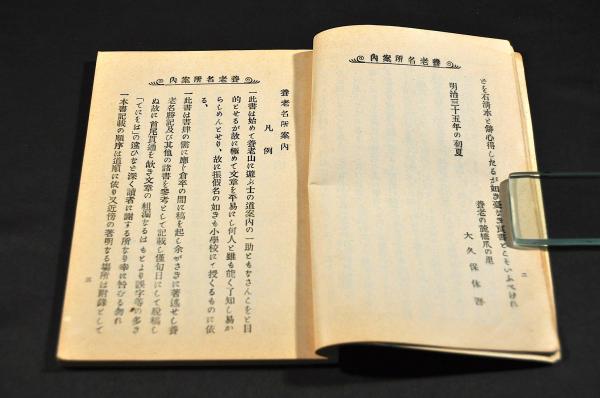 養老名所案內
とを石淸水と傳心得したるが如き憂なき良書とこそいふべけれ
明治三十五年の初夏
養老の
大久保休吾
二
養老名所案內
養老名所案內
凡例
一此書は始めて養老山に遊ぶ士の道案內の一助ともなさんことを目
的とせるが故に極めて文章を平易にし何人と雖も能く了知し易か
らしめんとせり、故に振假名の如きも小學校にて授くるものに依
る、
一此書は書肆の需に應じ倉卒の間に稿を起し余がさきに著述せし養
老名勝記及び其他の諸書を參考として記載し僅旬日にして脫稿し
ぬ故に首尾貫通を缺き文章の粗漏なるはもとより誤字等の多き
「てにをは」の違ひなど深く讀者に謝する所なり幸に咎むる勿れ
一本書記載の順序は道順に依り又近傍の著明なる場所は附錄として
三